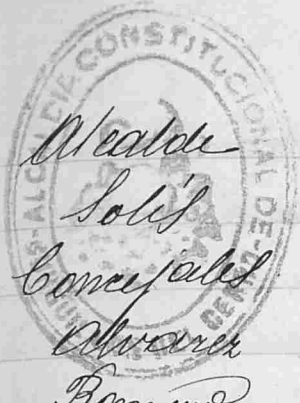 ALCALDIA CONSTITUCIONAL DE
Alcalde
Solís
Concejales
Alvarez